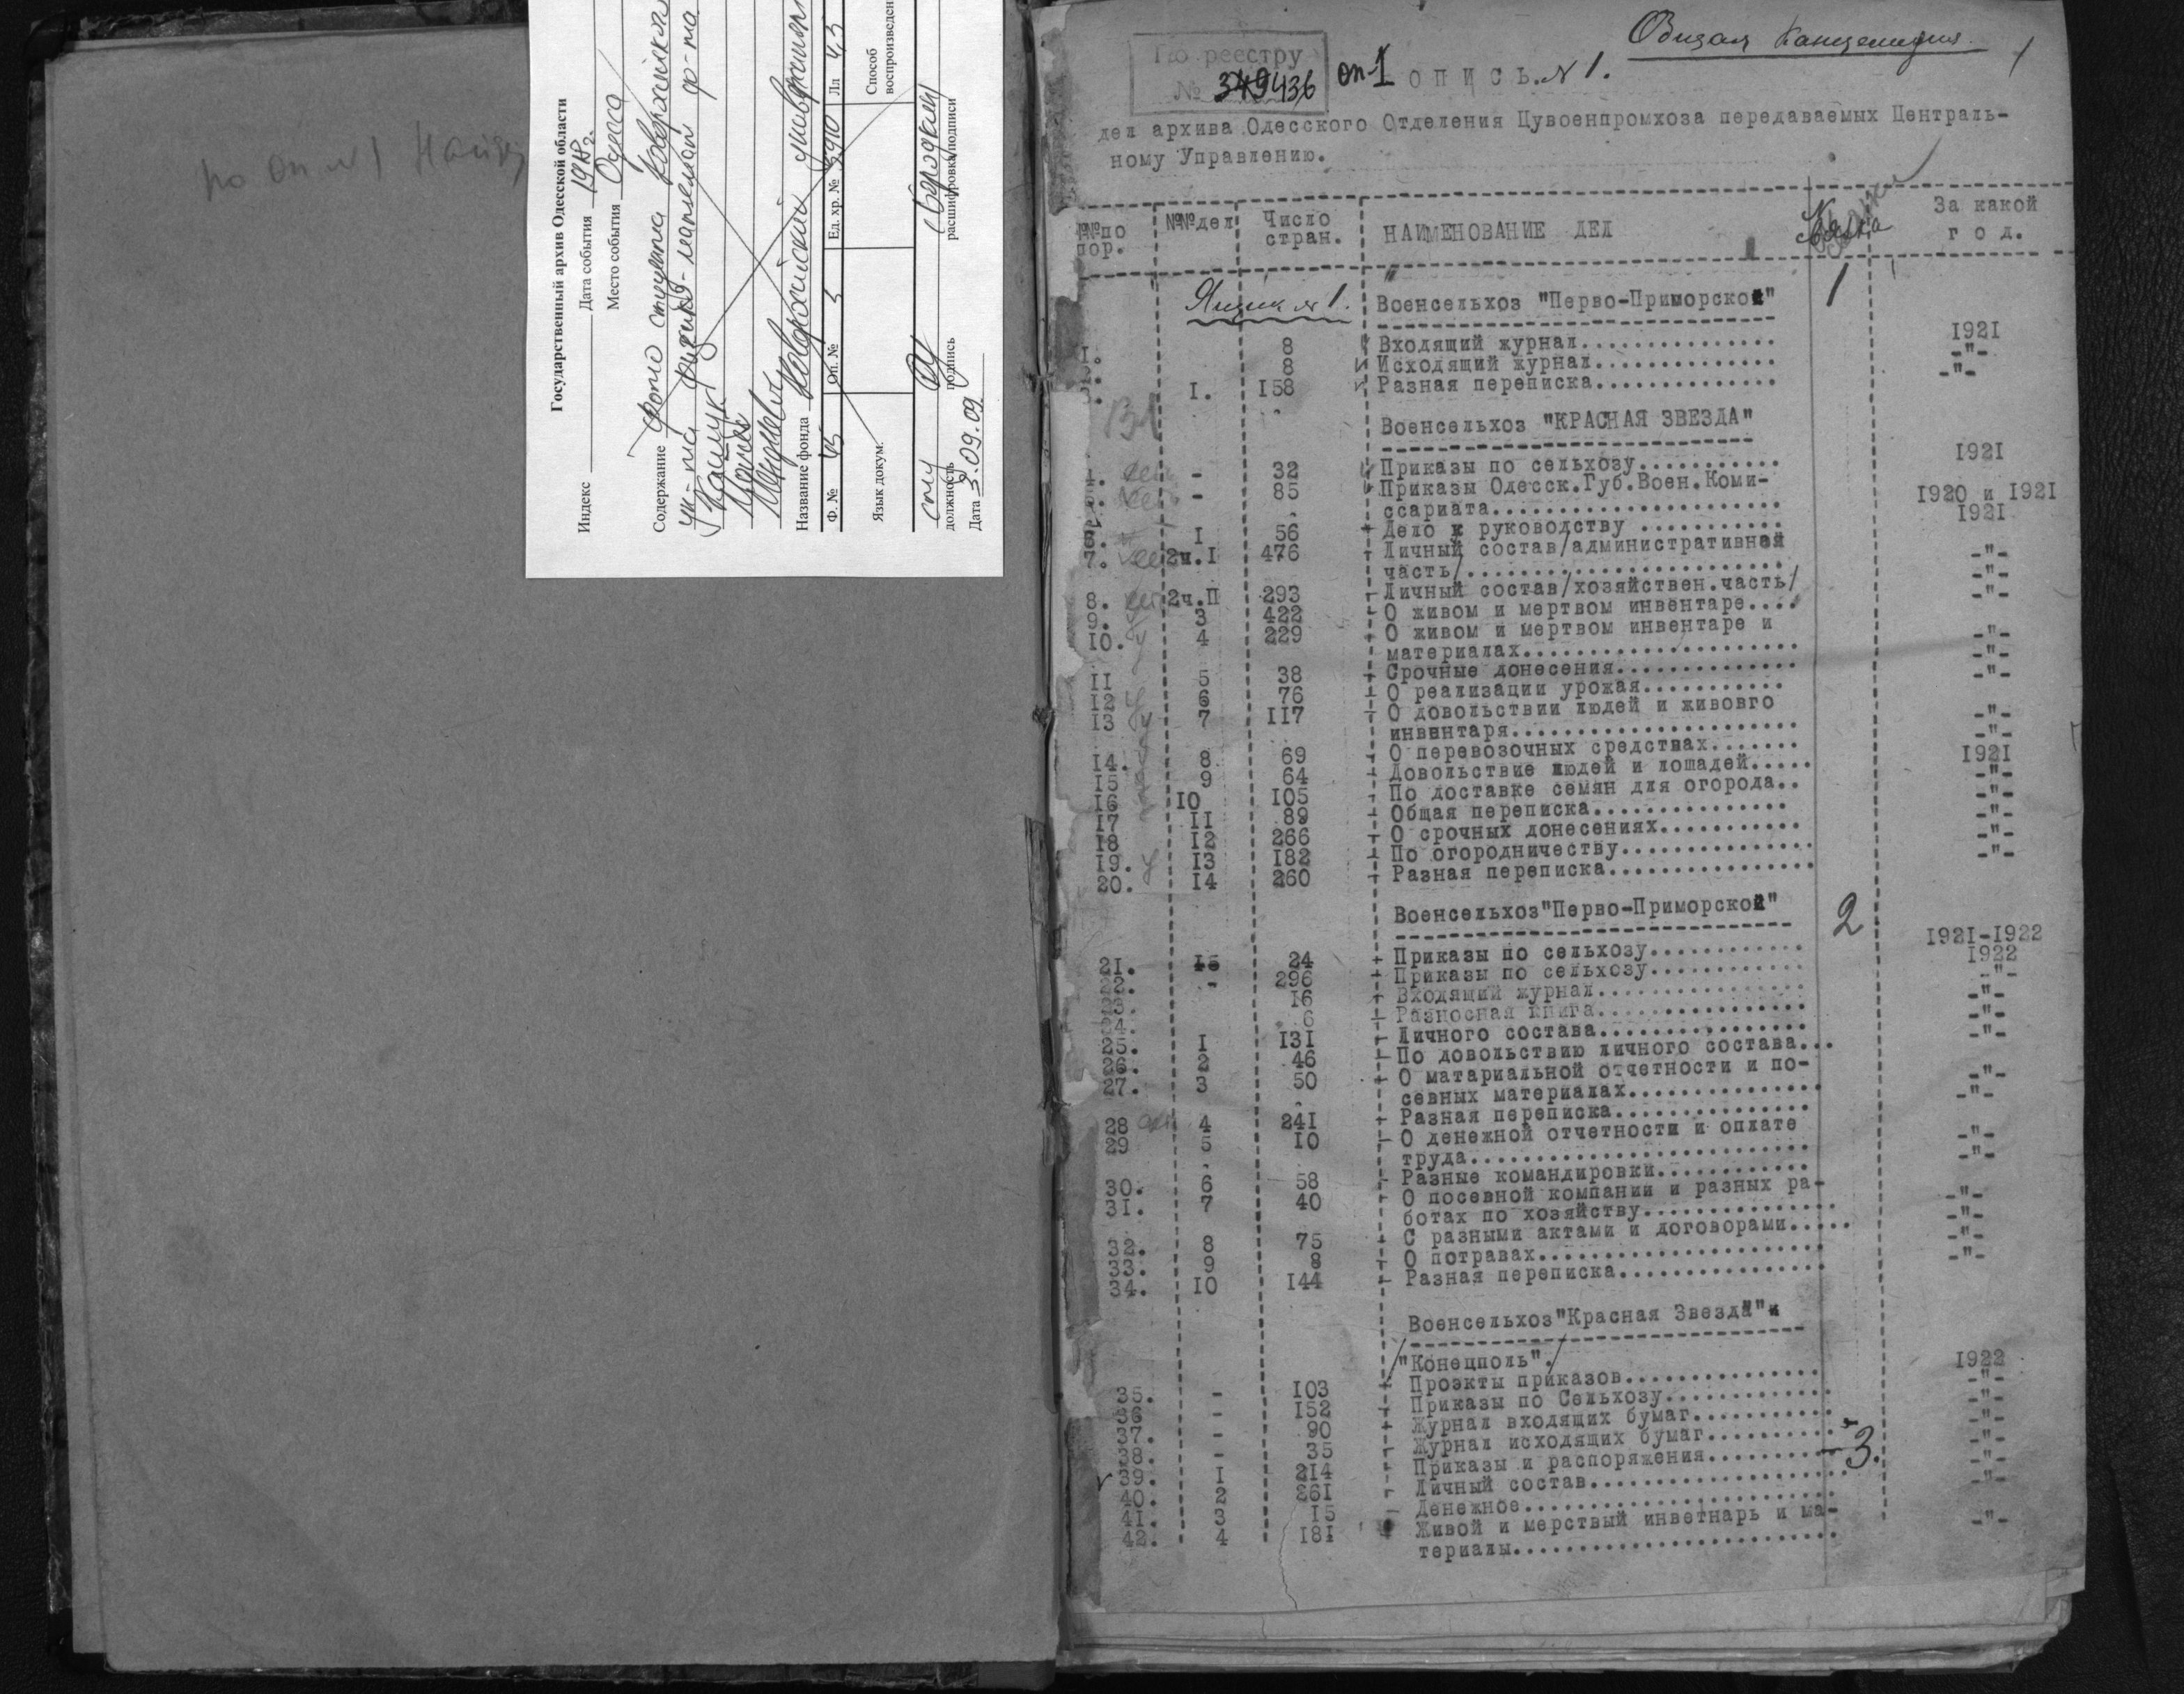 по оп №1
Государственный архив Одесской области
Индекс Дата события 1918г.
Место события Одесса
Содержание Фото студента Новороссийск
ун-та физико-математ ф-та
Название фонда Новороссийский университет
Ф. № 45 Оп. № 5 Ед. хр. № 3910 Лл 4,3
Язык докум. Способ
воспроизведен
должность подпись расшифровка/подписи
Дата 3.09.09
Общая Канцелярия
1
По реестру
№ 349436
оп-1
ОПИСЬ № 1.
дел архива Одесского Отделения Цувоенпромхоза передаваемых Централь-
ному Управлению.
№№по пор. №№дел Число стран. НАИМЕНОВАНИЕ ДЕЛ Связка За какой год.
Ящик №1. Военсельхоз "Перво-Приморской" 1
1. 8 Входящий журнал............... 1921
2. 8 Исходящий журнал.............. -"-
3. I. 158 Разная переписка.............. -"-
Военсельхоз "КРАСНАЯ ЗВЕЗДА"
4. - 32 Приказы по сельхозу........... 1921
5. - 85 Приказы Одесск.Губ.Воен.Коми-
ссариата...................... 1920 и 1921
6. I 56 Дело к руководству ........... 1921
7. 2ч.I 476 Личный состав/административной
часть/........................ -"-
8. 2ч.П 293 Личный состав/хозяйствен.часть/ -"-
9. 3 422 О живом и мертвом инвентаре.... -"-
10. 4 229 О живом и мертвом инвентаре и
материалах..................... -"-
II 5 38 Срочные донесения.............. -"-
12 6 76 О реализации урожая........... -"-
13 7 117 О довольствии людей и живовго
инвентаря...................... -"-
14. 8 69 О перевозочных средствах....... -"-
15 9 64 Довольствие людей и лошадей..... 1921
16 10 105 По доставке семян для огорода.. -"-
17 II 89 Общая переписка................ -"-
18 12 266 О срочных донесениях........... -"-
19. 13 182 По огородничеству............... -"-
20. 14 260 Разная переписка................ -"-
Военсельхоз"Перво-Приморской" 2
21. 15 24 Приказы по сельхозу............ 1921-1922
22. - 296 Приказы по сельхозу............ 1922
23. 16 Входящий журнал................ -"-
24. 6 Разносная книга................ -"-
25. I 131 Личного состава................ -"-
26. 2 46 По довольствию личного состава... -"-
27. 3 50 О матариальной отчетности и по-
севных материалах............... -"-
28 4 241 Разная переписка............... -"-
29 5 10 О денежной отчетности и оплате
труда.......................... -"-
30. 6 58 Разные командировки............ -"-
31. 7 40 О посевной компании и разных ра-
ботах по хозяйству............... -"-
32. 8 75 С разными актами и договорами..... -"-
33. 9 8 О потравах...................... -"-
34. 10 144 Разная переписка................ -"-
Военсельхоз"Красная Звезда"и
/"Конецполь"./
35. - 103 Проэкты приказов............... 1922
36 - 152 Приказы по Сельхозу............. -"-
37. - 90 Журнал входящих бумаг........... -"-
38. - 35 Журнал исходящих бумаг.......... -"-
39. I 214 Приказы и распоряжения.......... 3. -"-
40. 2 261 Личный состав................... -"-
41. 3 15 Денежное....................... -"-
42. 4 181 Живой и мерствый инветнарь и ма-
териалы........................ -"-